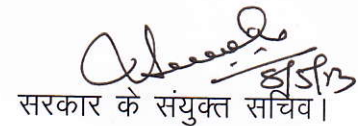 8/5/13
सरकार के संयुक्त सचिव।